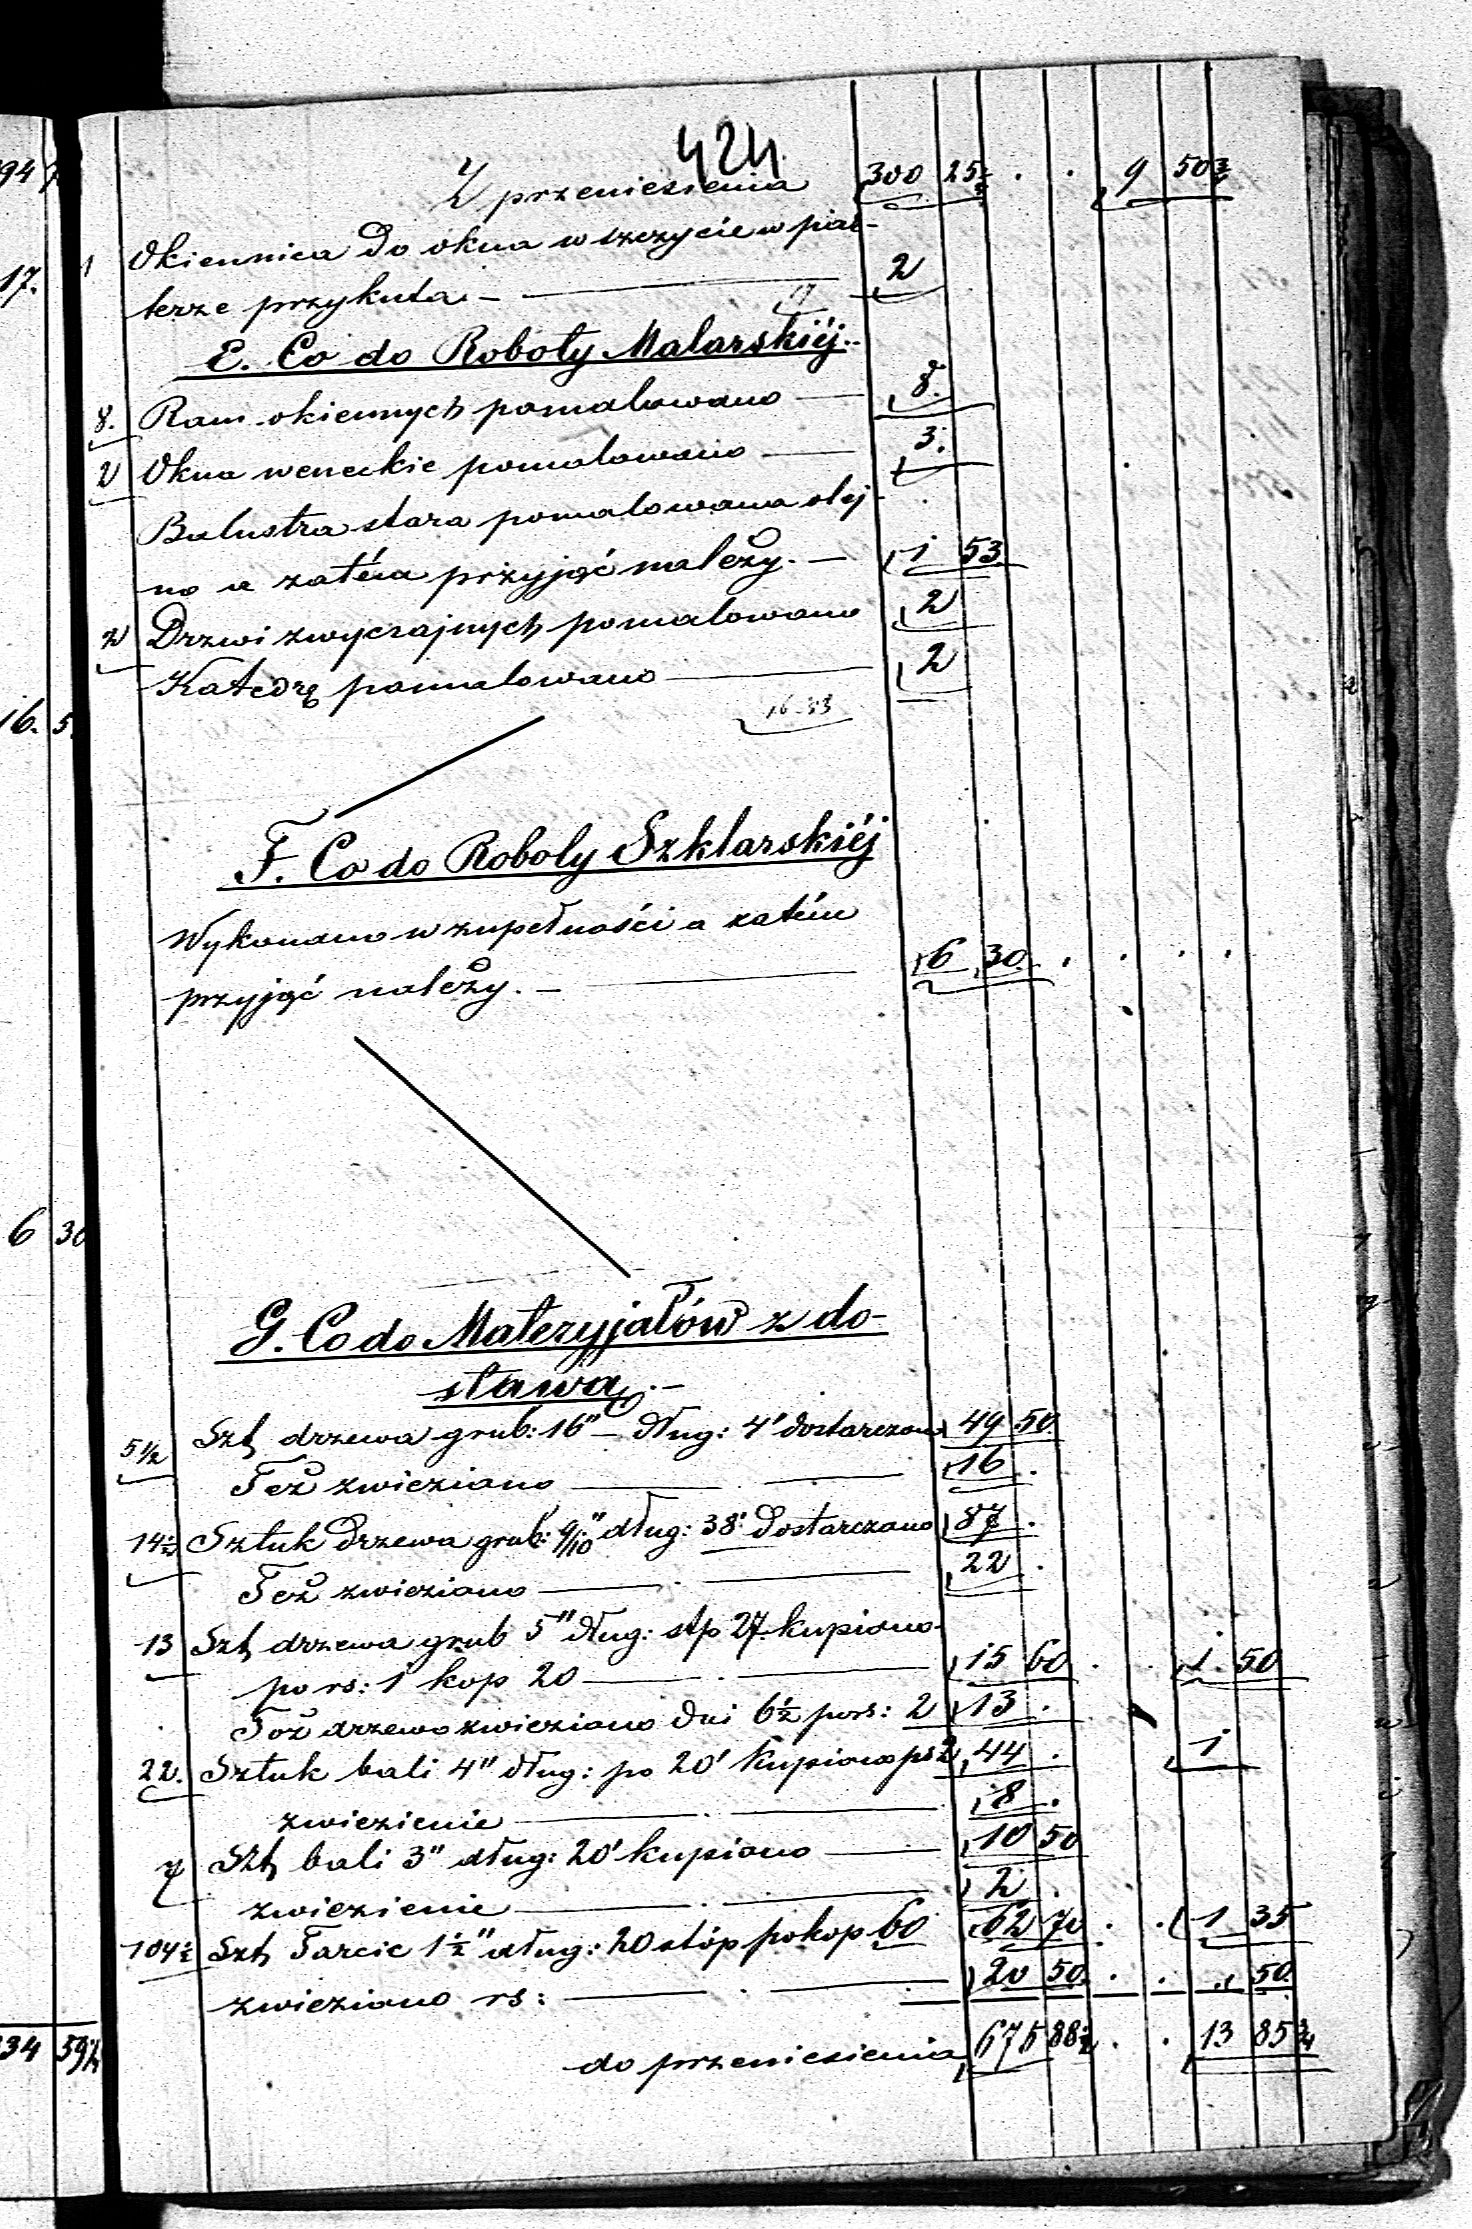 424.
Z przeniesienia 300 25½ . . 9 50¾
1 Okiennica do okna w szczycie w par-
terze przykuta - 2
E. Co do Roboty Malarskiéj.
8. Ram okiennych pomalowano 8.
2 Okna weneckie pomalowano 3.
Balustra stara pomalowana olej-
no a zatém przyjąć należy. 1 53
2 Drzwi zwyczajnych pomalowano 2
Katedrę pomalowano 2
16-53
F. Co do Roboty Szklarskiéj
Wykonano w zupełności a zatém
przyjąć należy. - 6 30 . . . .
G. Co do Materyjałów z do-
stawą.-
5½ Szt drzewa grub: 16" - dług: 4' dostarczono 49 50
Też zwieziono 16 .
14½ Sztuk drzewa grub: 9/10" dług: 38' dostarczono 87 .
Też zwieziono 22 .
13 Szt drzewa grub 5" dług: stp 27. kupiono
po rs: 1 kop 20 15 60 . . 1 50
Toż drzewo zwieziono dni 6½ po rs: 2 13 .
22. Sztuk bali 4" dług: po 20' kupiono po 2 44 . 1
zwiezienie 8 .
7 Szt bali 3" dług: 20' kupiono 10 50
zwiezienie 2 .
104½ Szt Tarcic 1½" dług: 20 stóp po kop 60 62 70 . . 1 35
zwieziono rs: 20 50 . . . 50
do przeniesienia 675 88½ . . 13 85¾
94
17.
16. 5
6 30
34 59½